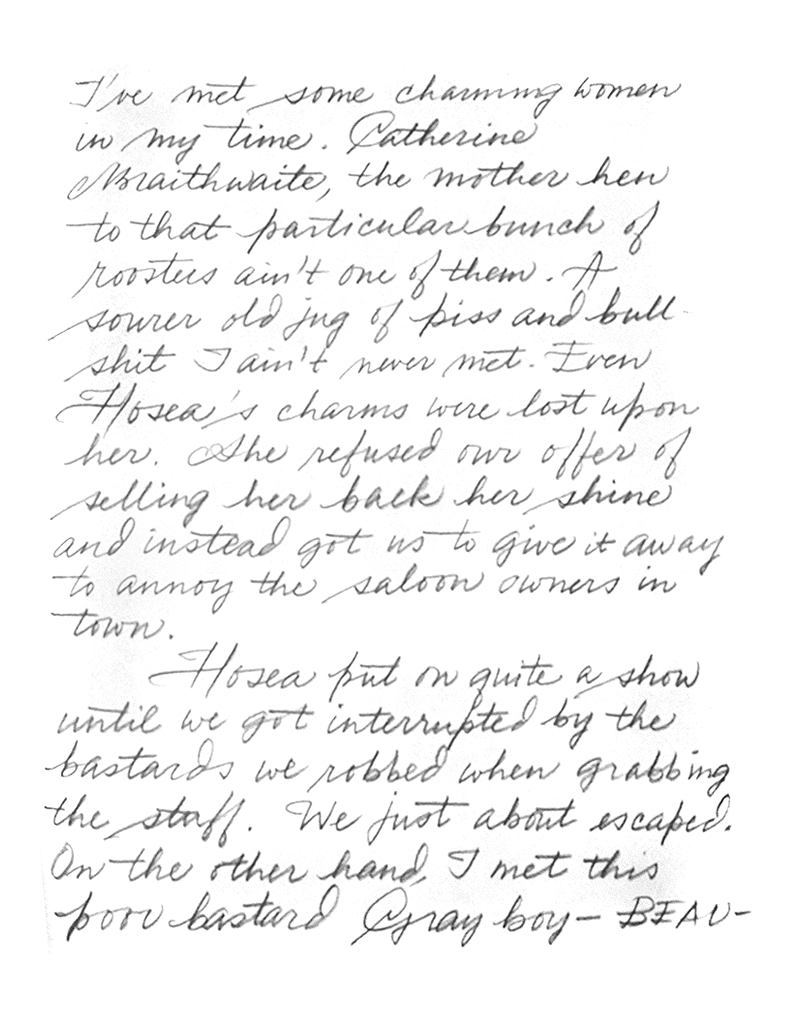 I've met some charming women
in my time. Catherine
Braithwaite, the mother hen
to that particular bunch of
roosters ain't one of them. A
sourer old jug of piss and bull-
shit I ain't never met. Even
Hosea's charms were lost upon
her. She refused our offer of
selling her back her shine
and instead got us to give it away
to annoy the saloon owners in
town.
Hosea put on quite a show
until we got interrupted by the
bastards we robbed when grabbing
the stuff. We just about escaped.
On the other hand, I met this
poor bastard Gray boy - BEAU -